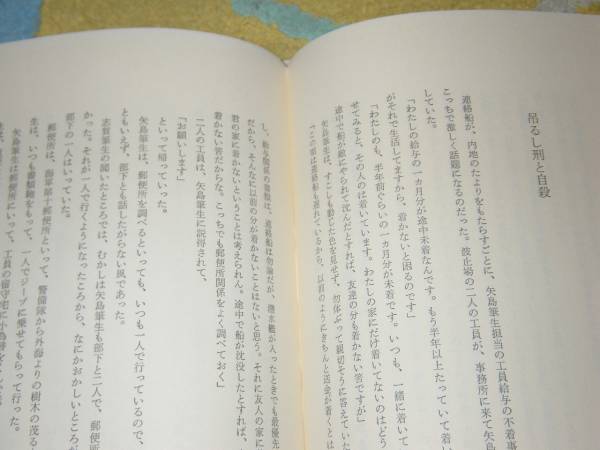 吊るし刑と自殺
連絡船が、内地のたよりをもたらすごとに、矢島筆生担当の工員給与の不着事
こっちで激しく話題になるのだった。波止場の二人の工員が、事務所に来て矢島
していた。
「わたしの給与の一カ月分が途中未着なんです。もう半年以上たっていて着い
がそれで生活してますから、着かないと困るのです」
「わたしのも、半年前ぐらいの一カ月分が未着です。いつも、一緒に着いて
せてみると、その人のは着いています。わたしの家にだけ着いてないのはどう
途中で船が敵にやられて沈んだとすれば、友達の分も着かない筈ですが」
矢島筆生は、すこしも動じた色を見せず、勿体ぶって親切そうに答えていた
「この頃は連絡船も遅れているから、以前のようにきちんと送金が着くとは
し、給与関係の書類は、連絡船は勿論だが、潜水艦が入ったときでも最優先
だから、そんなに以前の分が着かないことはないと思う。それに友人の家に
君の家に着かないということは考えられん。途中で船が沈没したとすれば、
着かない筈だからな。こっちでも郵便所関係をよく調べておく」
「お願いします」
二人の工員は、矢島筆生に説得されて、
といって帰っていった。
矢島筆生は、郵便所を調べるといっても、いつも一人で行っているので、
ともいえず、部下とも話したがらない風であった。
志賀筆生の聞いたところでは、むかしは矢島筆生も部下と二人で、郵便所
かった。それが一人で行くようになったころから、なにかおかしいところが
部下の一人はいっていた。
郵便所は、海軍第十郵便所といって、警備隊から外海よりの樹木の茂る
生は、いつも書類物をもって、一人でジープに乗せてもらって行った。
矢島筆生は郵便所にいって、工員の留守宅に小為替を